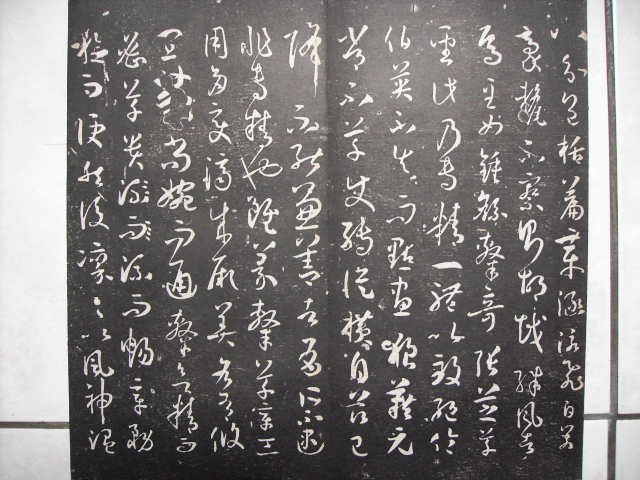 八分包括篇章涵泳飛白若
豪釐不察則胡越殊風者
焉至如鍾繇隸奇張芝草
聖此乃專精一體以致絕倫
伯英不真而點畫狼藉元
常不草使轉縱橫自茲已
降不能兼善者有所不逮
非專精也雖篆隸草章工
用多變濟成厥美各有攸
宜篆尚婉而通隸欲精而
密草貴流而流而暢章務
檢而便然後凜之以風神溫